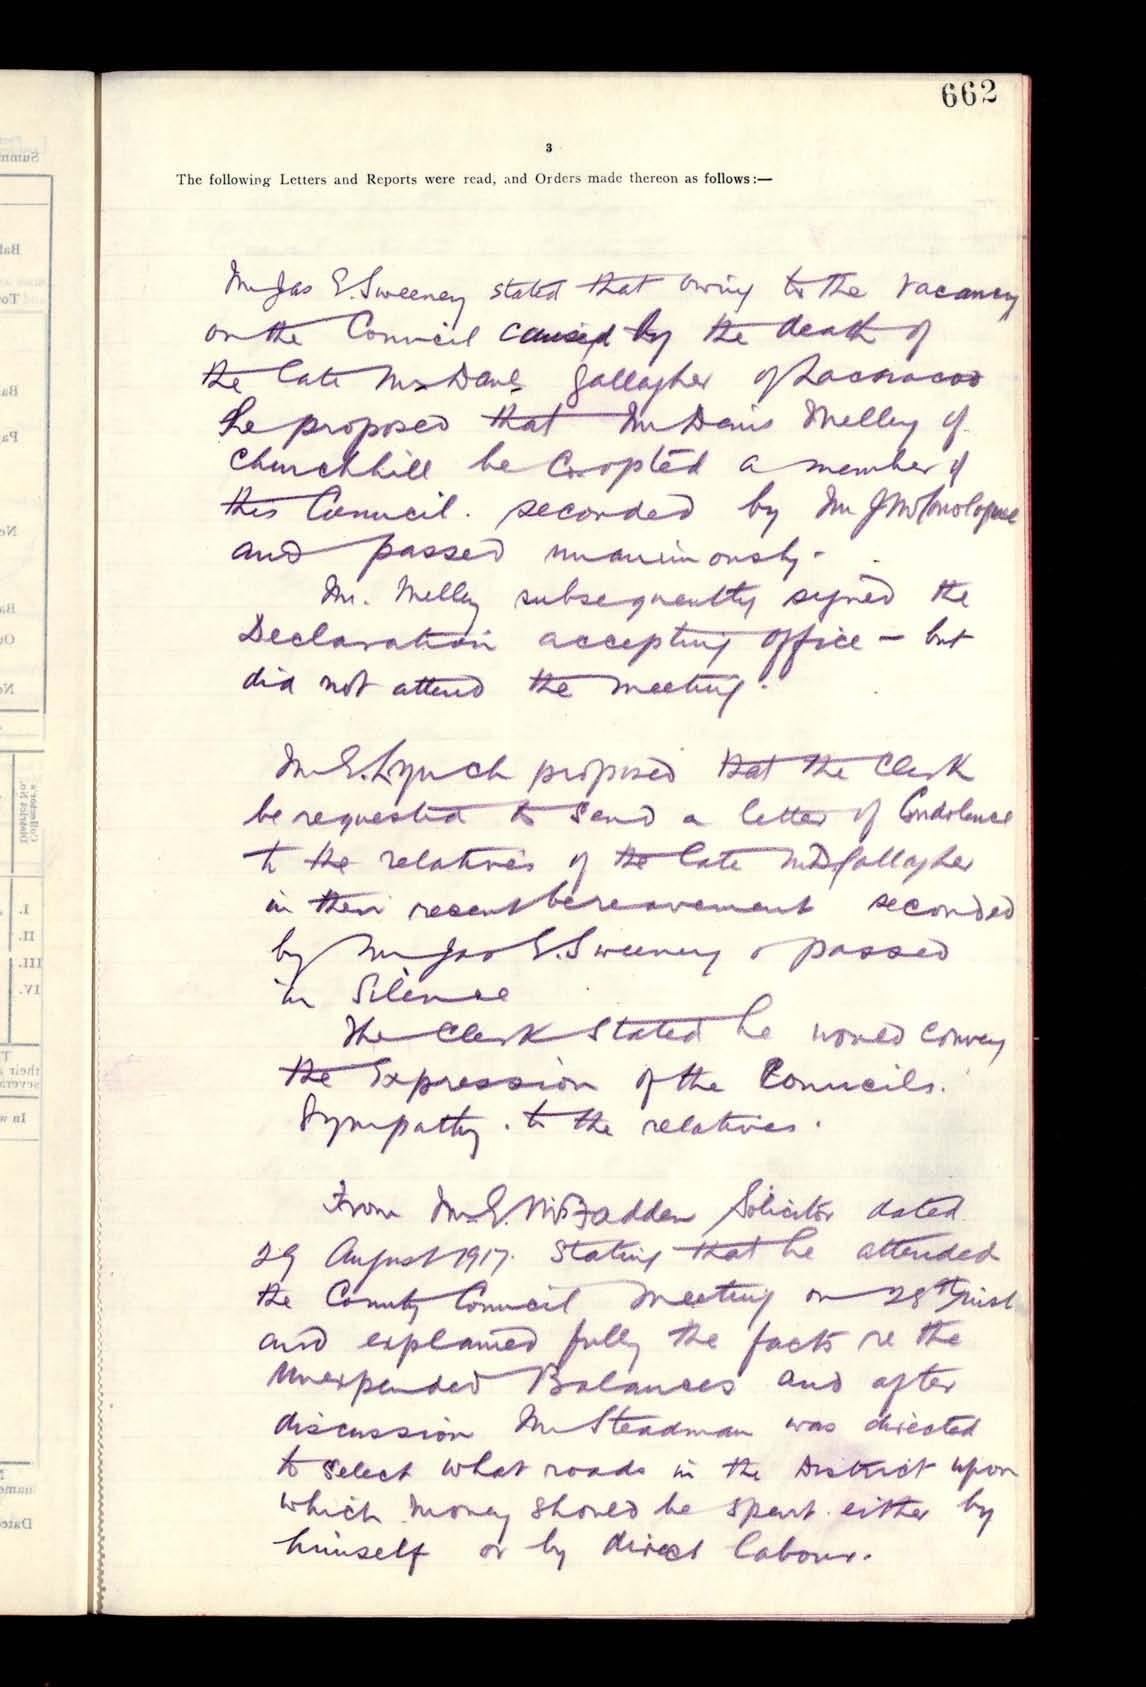 662
3
The following Letters and Reports were read, and Orders made thereon as follows:—
Mr Jas E. Sweeney stated that owing to the vacancy
on the Council caused by the death of
the late Mr Danl Gallagher of
he proposed that Mr Denis Melley of
Churchhill be Co-opted a member of
this Council. seconded by Mr J McMonologue
and passed unanimously -
Mr. Melley subsequently signed the
Declaration accepting office – but
did not attend the meeting.
Mr E. Lynch proposed that the Clerk
be requested to send a letter of Condolence
to the relatives of the late Mr D. Gallagher
in their recent bereavement seconded
by Mr Jas E. Sweeney & passed
in Silence
The Clerk stated he would convey
the Expression of the Councils.
Sympathy . to the relatives .
From Mr E. McFadden Solicitor dated
29 August 1917. Stating that he attended
the County Council Meeting on 28th inst
and explained fully the facts re the
Unexpended Balances and after
discussion Mr Steadman was directed
to select what roads in the District upon
which money should be spent either by
himself or by direct labour.